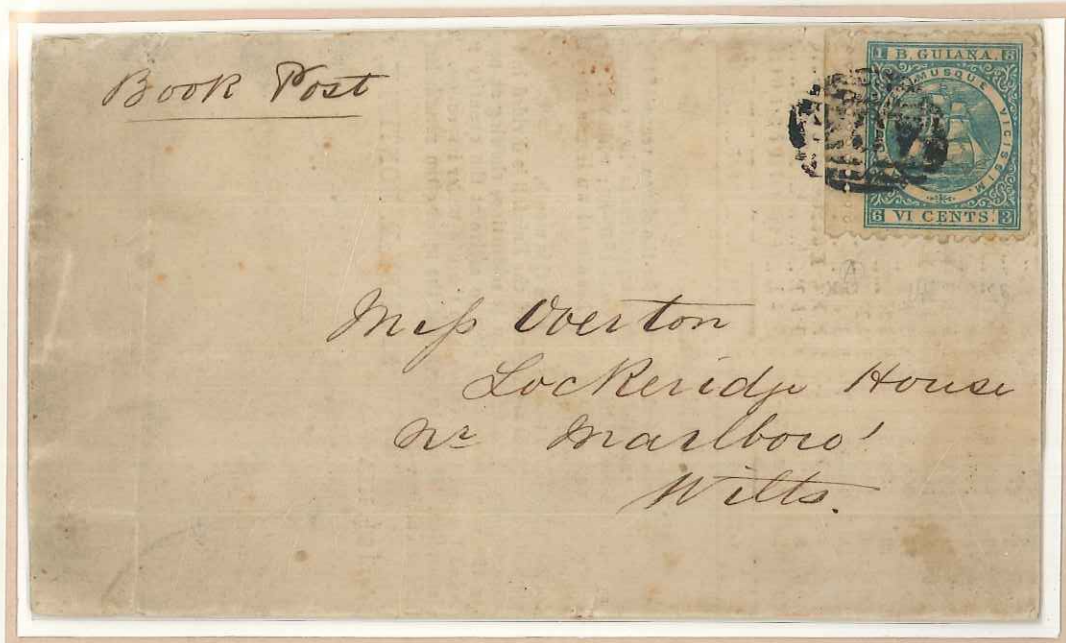 Book Post
1 B. GUIANA. 8
DAMUSQUE VICISSIM.
6 VI CENTS. 3
Miss Overton
Lockeridge House
Nr Marlboro'
Wilts.